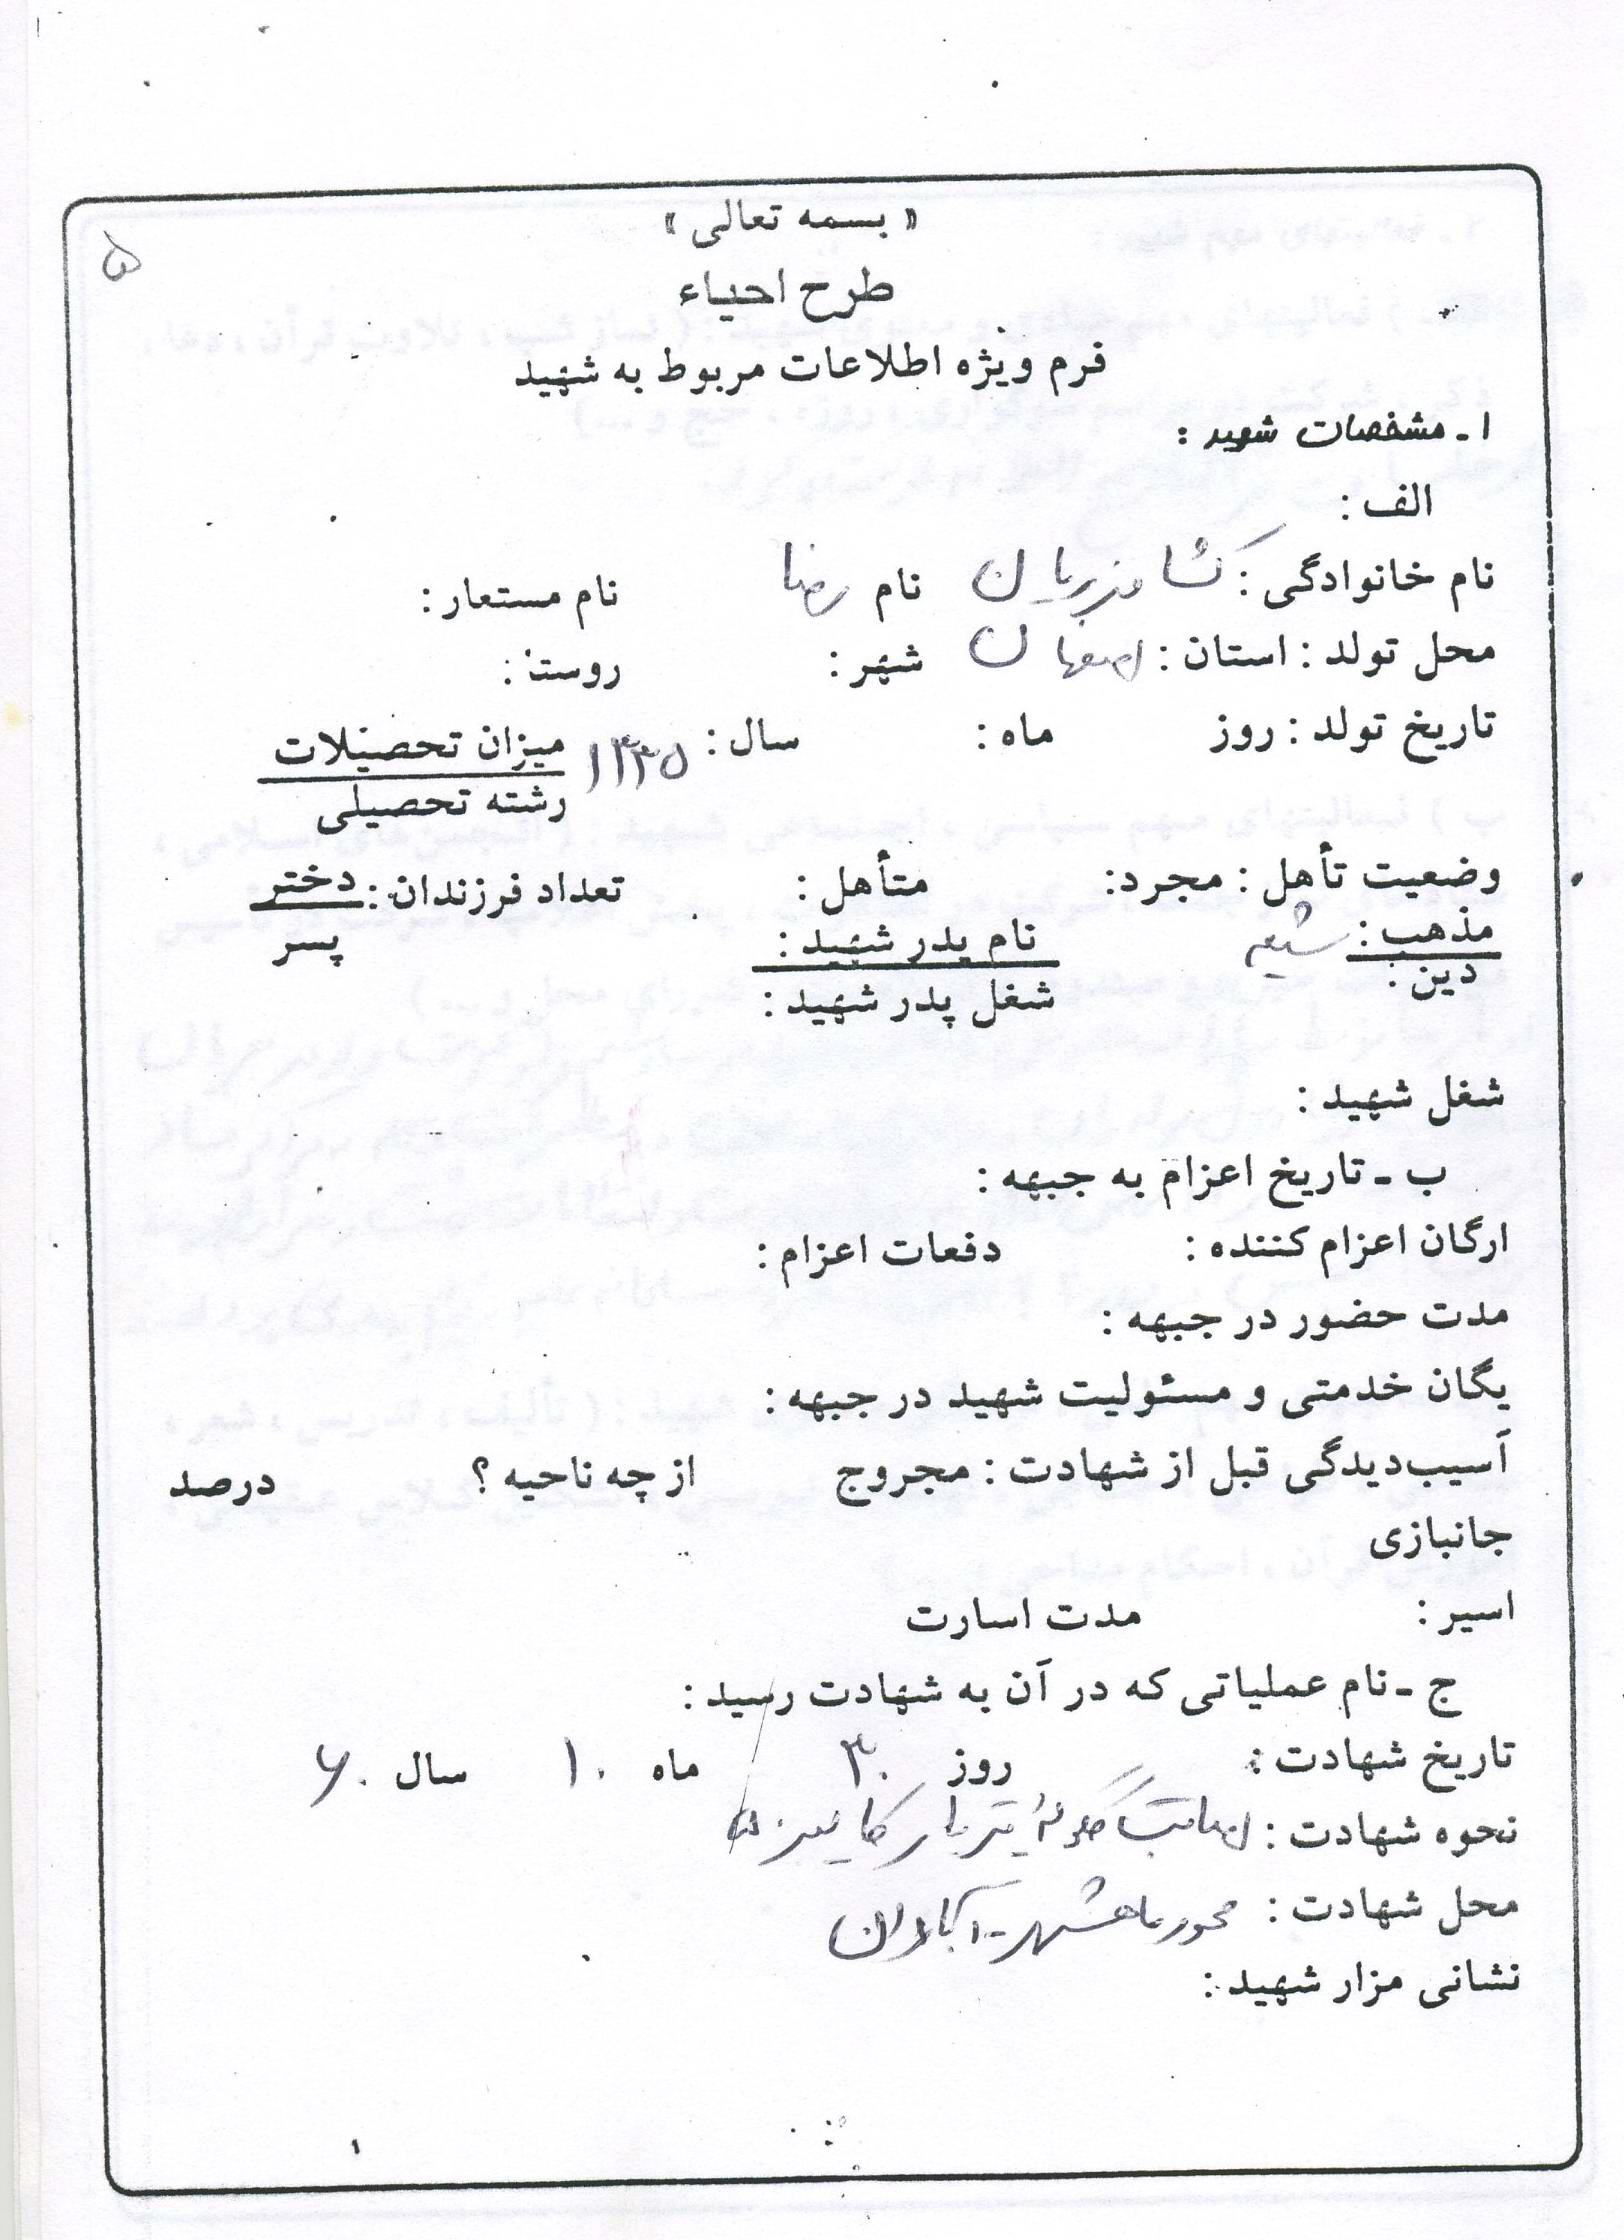 « بسمه تعالی »
۵
طرح احیاء
فرم ویژه اطلاعات مربوط به شهید
۱ـ مشخصات شهید :
الف :
نام خانوادگی : نام رضا نام مستعار :
محل تولد : استان : اصفهان شهر : روستا :
تاریخ تولد : روز ماه : سال : ۱۳۳۵ میزان تحصیلات
رشته تحصیلی
وضعیت تأهل : مجرد: متأهل : تعداد فرزندان : دختر
پسر
مذهب : شیعه نام پدر شهید :
دین : شغل پدر شهید :
شغل شهید :
ب ـ تاریخ اعزام به جبهه :
ارگان اعزام کننده : دفعات اعزام :
مدت حضور در جبهه :
یگان خدمتی و مسئولیت شهید در جبهه :
آسیب‌دیدگی قبل از شهادت : مجروح از چه ناحیه ؟ درصد
جانبازی
اسیر : مدت اسارت
ج ـ نام عملیاتی که در آن به شهادت رسید :
تاریخ شهادت : روز ۳۰ ماه ۱۰ سال ۶۰
نحوه شهادت : اصابت گلوله تیربار کالیبر ۵۰
محل شهادت : محور ماهشهر - آبادان
نشانی مزار شهید :
۱